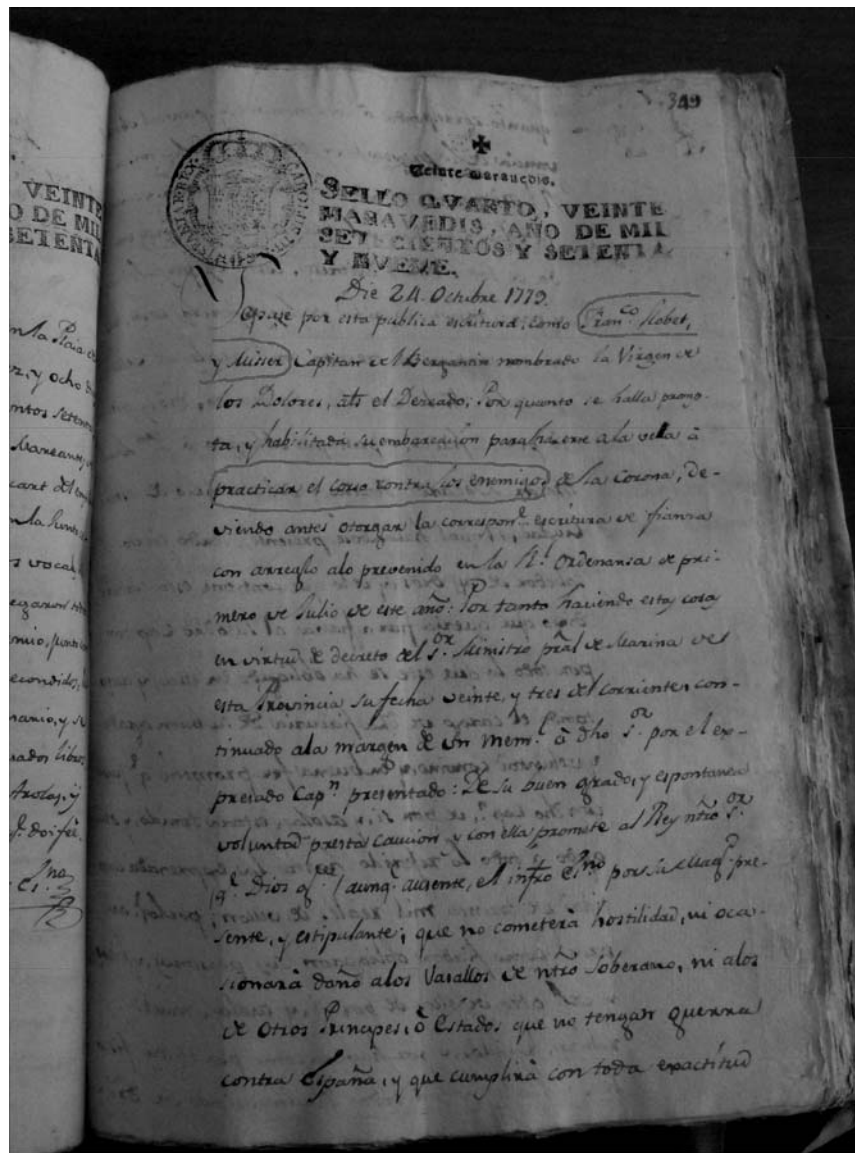 349
Veinte marauedis.
SELLO QVARTO, VEINTE
MARAVEDIS, AÑO DE MIL
SETECIENTOS Y SETENTA
Y NUEVE.
VEINTE
O DE MIL
SETENTA
Die 24 Octubre 1779.
Sepase por esta publica escritura; como Franco.
y Misser Capitan del Bergantin nombrado la Virgen de
los Dolores, als el Deseado; Por quanto se halla prompta,
ta, y habilitada su embarcacion para hacerse a la vela â
practicar el corso contra los enemigos de la Corona; de-
viendo antes otorgar la correspone. escritura de fianza
con arreglo alo prevenido en la Rl. Ordenansa de pri-
mero de Julio de este año: Por tanto haviendo estas cosas
en virtud de decreto del Sor. Ministro pral de Marina de
esta Provincia su fecha veinte, y tres del corriente, con-
tinuado ala margen de un meml. â dho Sor. por el ex-
presado Capn. presentado: De su buen grado, y espontanea
voluntad presta caucion y con ella promete al Rey ntro Sor.
q. Dios gue. aunq. ausente, el infro Esno por su Magd. pre-
sente, y estipulante; que no cometerà hostilidad, ni oca-
sionarà daño alos Vasallos de ntro Soberano, ni alos
de otros Principes, ò Estados que no tengan guerra
contra España; y que cumplirà con toda exactitud